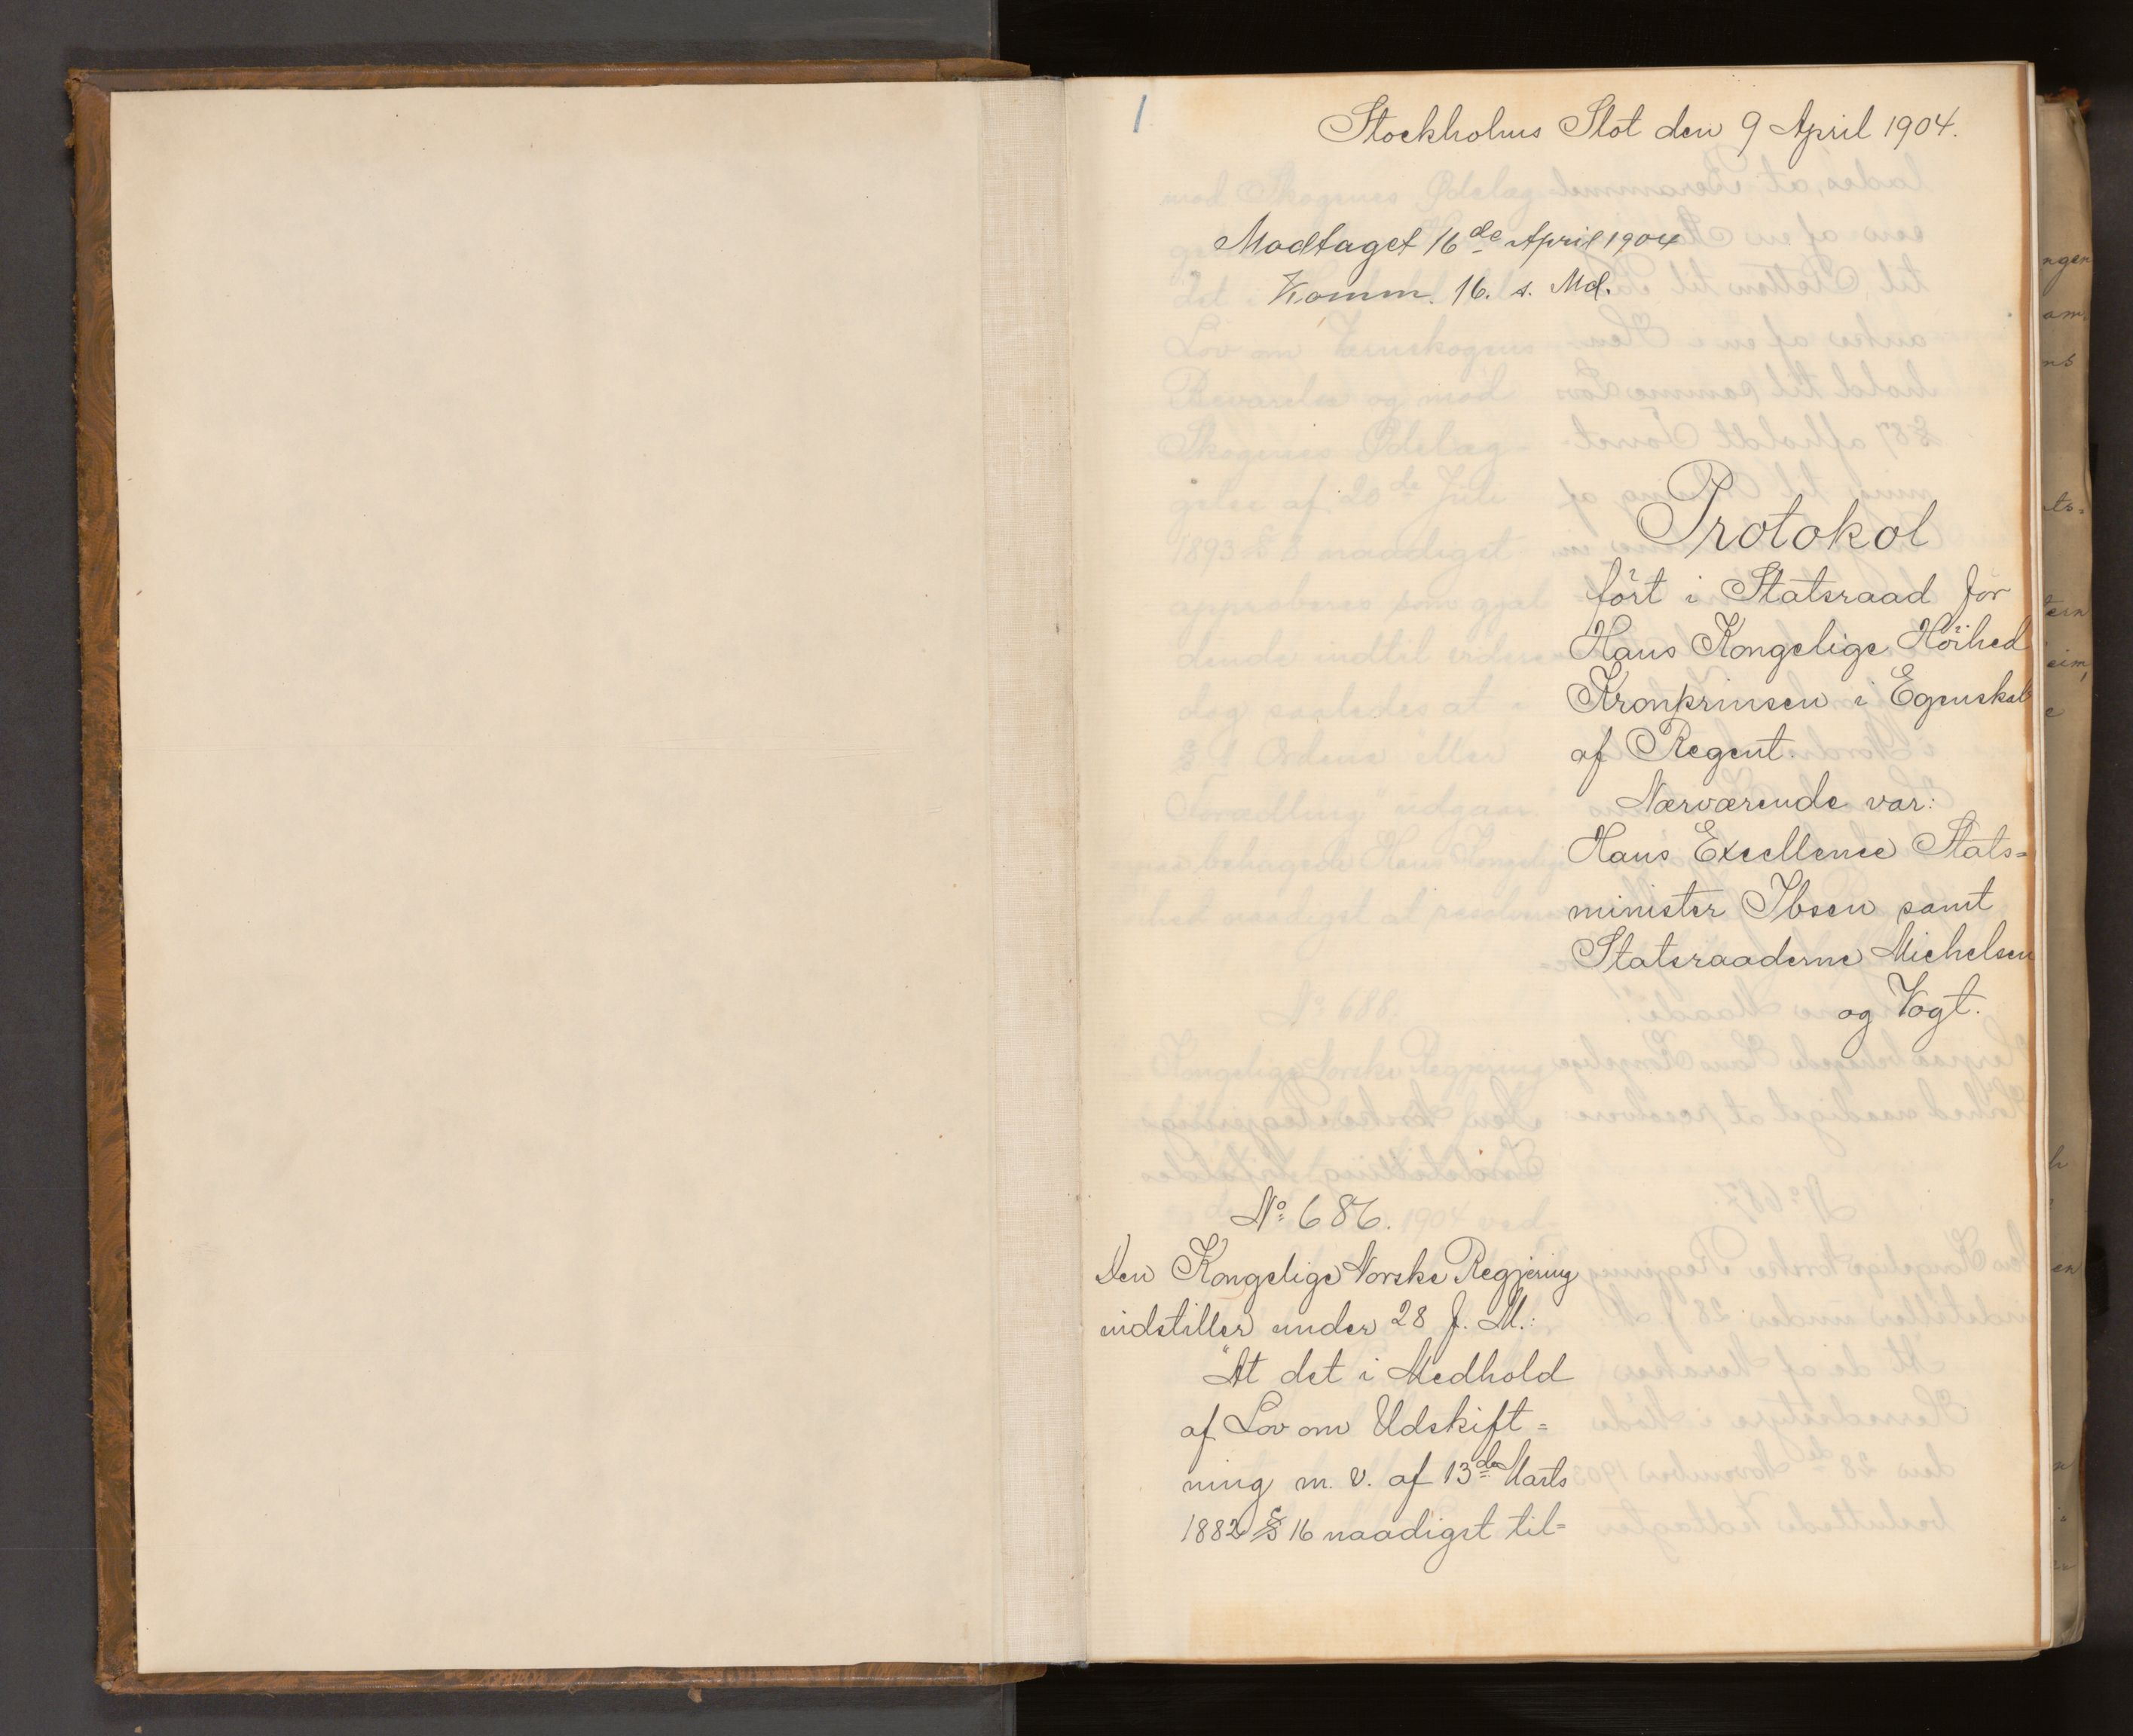 1
Stockholms Slot den 9 April 1904.
Modtaget 16de April 1904
Komm. 16. s. Md.
Protokol
fört i Statsraad for
Hans Kongelige Höihed
Kronprinsen i Egenskab
af Regent.
Nærværende var:
Hans Excellence Stats=
minister Ibsen samt
Statsraaderne Michelsen
og Vogt.
No 686.
Den Kongelige Norske Regjering
indstiller under 28 f. M.:
"At det i Medhold
af Lov om Udskift=
ning m. v. af 13de Marts
1882 § 16 naadigst til=